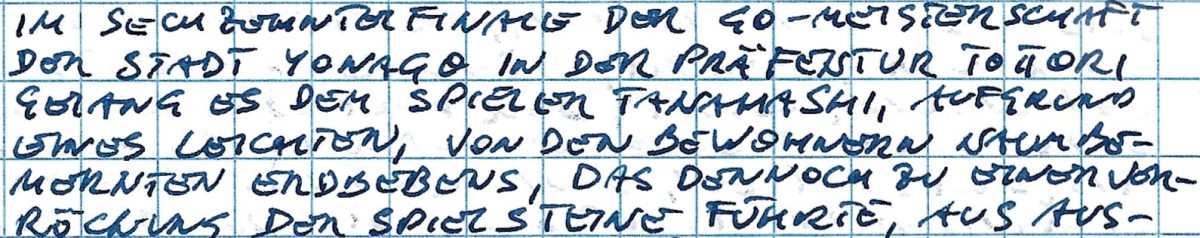 IM SECHZEHNTELFINALE DER GO-MEISTERSCHAFT
DER STADT YONAGO IN DER PRÄFEKTUR TOTTORI
GELANG ES DEM SPIELER TANAHASHI, AUFGRUND
EINES LEICHTEN, VON DEN BEWOHNERN KAUM BE-
MERKTEN ERDBEBENS, DAS DENNOCH ZU EINER VER-
RÜCKUNG DER SPIELSTEINE FÜHRTE, AUS AUS-